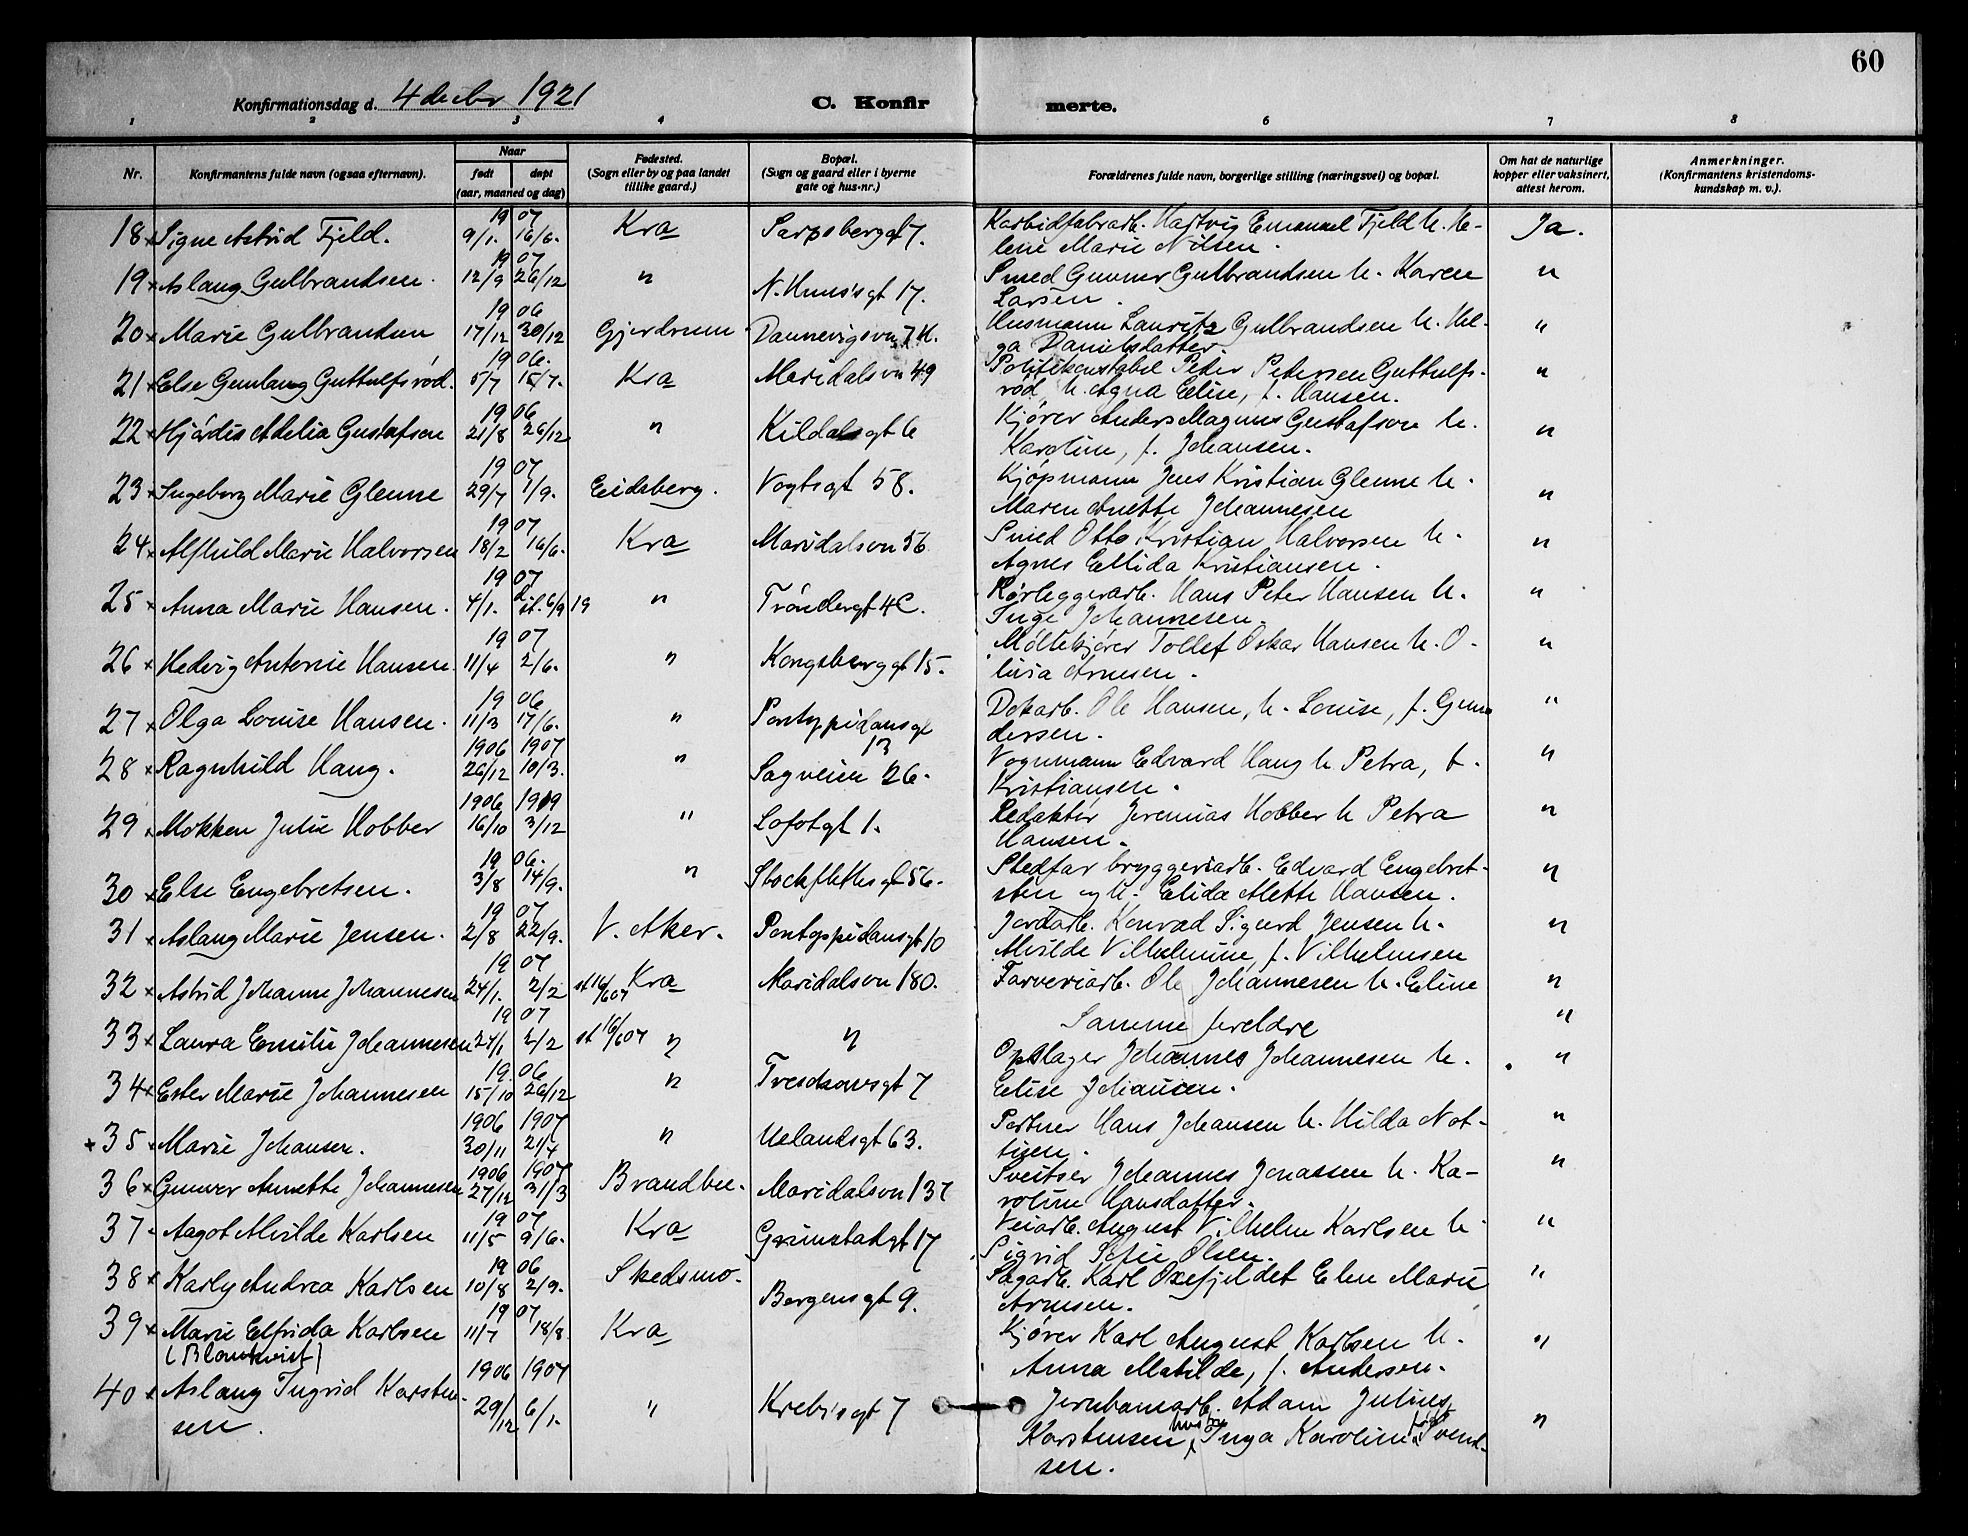 60
Konfirmationsdag d. 4 decbr 1921 C. Konfir merte.
1 2 3 4 5 6 7 8
Nr. Konfirmantens fulde navn (ogsaa efternavn). Naar født døpt (aar, maaned og dag) Fødested. (Sogn eller by og paa landet tillike gaard.) Bopæl. (Sogn og gaard eller i byerne gate og hus-nr.) Forældrenes fulde navn, borgerlige stilling (næringsvei) og bopæl. Om hat de naturlige kopper eller vaksinert, attest herom. Anmerkninger. (Konfirmantens kristendomskundskap m. v.).
19 07
18 x Signe Astrid Fjeld. 9/1. 16/6. Kra Sarpsborggt 7. Karbidfabrarb. Hartvig Emanuel Fjeld h. He- Ja.
lene Marie Nilsen.
19 07
19 x Aslaug Gulbrandsen. 12/9 26/12 " N. Huus's gt 17. Smed Gunner Gulbrandsen h. Karen "
Larsen.
19 06
20 x Marie Gulbrandsen 17/12 30/12 Gjerdrum Dannevigsvn 7 H. Husmann Lauritz Gulbrandsen h. Hel- "
ga Danielsdatter.
19 06.
21 x Else Gunlaug Guttulfsrød. 5/7 15/7. Kra Maridalsvn 49 Politikonstabel Peder Pedersen Guttulfs- "
rød, h. Agna Elise, f. Hansen.
19 06
22 x Hjørdis Adelia Gustafson 21/8 26/12 " Kildalsgt 6 Kjører Anders Magnus Gustafson h. "
Karoline, f. Johansen.
19 07
23 x Ingeborg Marie Glenne 29/7 1/9. Eidsberg. Vogtsgt 58. Kjøpmann Jens Kristian Glenne h. "
Maren Anette Johannesen
19 07
24 x Alfhild Marie Halvorsen 18/2 16/6. Kra Maridalsvn 56 Smed Otto Kristian Halvorsen h. "
Agnes Ellida Kristiansen.
19 07
25 x Anna Marie Hansen. 4/1. st. 6/9 19 " Trøndergt 4C. Rørleggerarb. Hans Peter Hansen h. "
Inge Johannesen.
19 07
26 x Hedvig Antonie Hansen. 11/4 2/6. " Kongsberggt 15. Møllekjører Tollef Oskar Hansen h. O- "
livia Arnesen.
19 06
27 x Olga Louise Hansen. 11/3 17/6. " Pontoppidansgt 13 Dokarb. Ole Hansen, h. Louise, f. Gun- "
dersen.
1906 1907
28 x Ragnhild Haug. 26/12 10/3. " Sagveien 26. Vognmann Edvard Haug h Petra, f. "
Kristiansen.
1906 1919
29 x Mokken Julie Hobber 16/10 3/12 " Lofotgt 1. Redaktør Jeremias Hobber h Petra "
Hansen.
19 06.
30 x Else Engebretsen. 3/8 14/9. " Stockflethsgt 56. Stedfar bryggeriarb. Edvard Engebret- "
sen og h. Elida Mette Hansen.
19 07
31 x Aslaug Marie Jensen. 2/8 22/9. V. Aker. Pontoppidansgt 10 Jordarb. Konrad Sigurd Jensen h. "
Alvilde Vilhelmine, f. Vilhelmsen
19 07
32 x Astrid Johanne Johannesen 24/1. 2/2 st 16/6 07 Kra Maridalsvn 180. Farveriarb. Ole Johannesen h. Eline "
19 07
33 x Laura Emilie Johannesen 24/1 2/2 st 16/6 07 " " Samme foreldre "
19 06
34 x Ester Marie Johannesen 15/10 26/12 " Treschowsgt 7 Opslager Johannes Johannesen h. "
Elise Johansen.
1906 1907
x 35 x Marie Johansen. 30/11 21/4 " Uelandsgt 63. Portner Hans Johansen h. Hilda Not-
tien. "
1906 1907
36 x Gunvor Annette Johannesen 27/12 31/3 Brandbu. Maridalsvn 137 Sveitser Johannes Jonassen h. Ka- "
roline Hansdatter.
19 07
37 Aagot Alvilde Karlsen 11/5 9/6. Kra Grimstadgt 17 Veiarb. August Vilhelm Karlsen h "
Sigrid Sofie Olsen.
19 06
38 x Karly Andrea Karlsen 10/8 2/9. Skedsmo. Bergensgt 9. Sagarb. Karl Oxefjeldet Elen Marie "
Arnesen.
19 07
39 x Marie Elfrida Karlsen 11/7 18/8 Kra Kjører Karl August Karlsen h. "
(Blomkvist) Anna Matilde, f. Andersen.
1906 1907
40 x Aslaug Ingrid Karsten- 29/12 6/1. " Krebsgt 7 Jernbanearb. Adam Julius "
sen. Karstensen, hustru Inga Karoline født Svend-
sen.